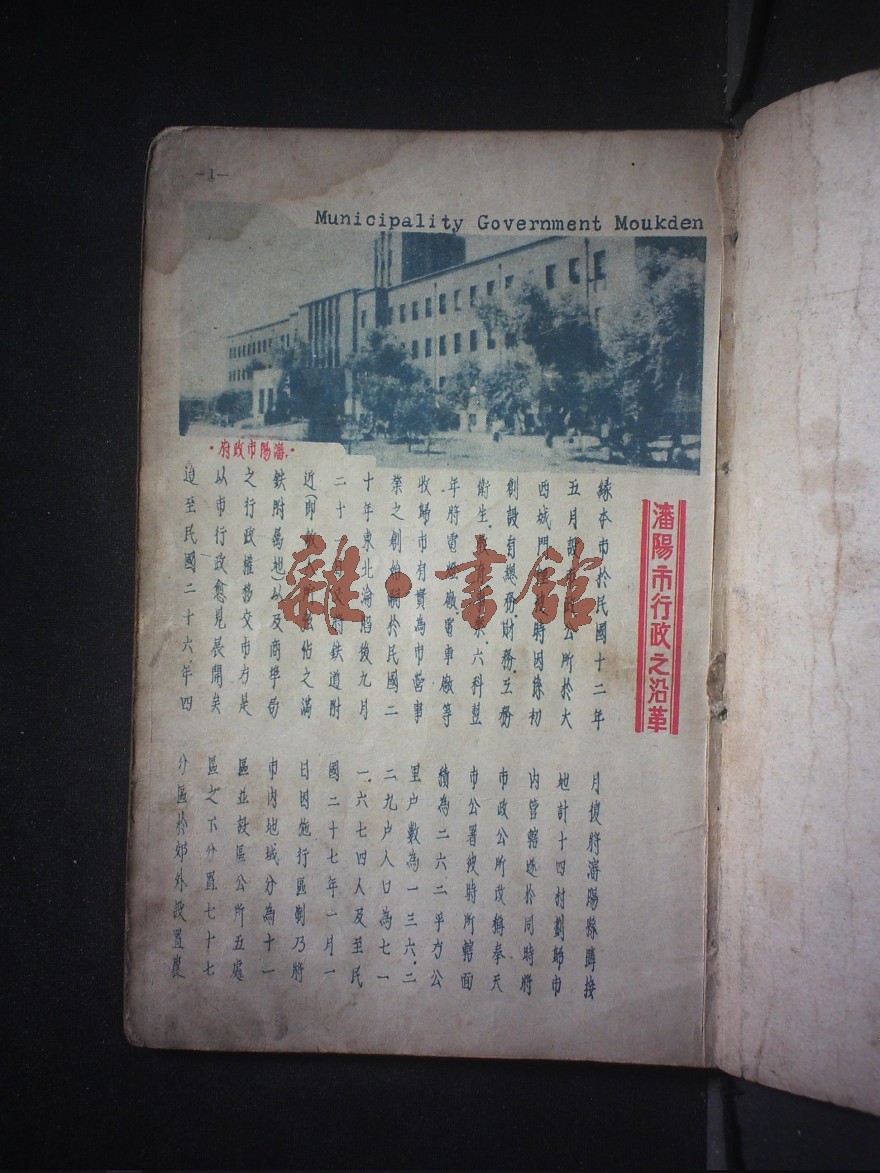 -1-
Municipality Government Moukden
·瀋陽市政府·
瀋陽市行政之沿革
緣本市於民國十二年
五月設市政公所於大
西城門裡彼時因係初
創設有總務財務工務
衛生、六科暨
年將電燈廠電車廠等
收歸市有實為市營事
業之創始嗣於民國二
十年東北淪陷後九月
二十鉄道附
近(即佔之滿
鉄附屬地)以及商埠局
之行政權移交市方是
以市行政愈見展開矣
迨至民國二十六、年四
月復將瀋陽縣購接
地計十四村劃歸市
內管轄迄於同時將
市政公所改稱奉天
市公署彼時所轄面
積為二六二平方公
里户數為一三六、二
二九户人口為七一
一、六七四人及至民
國二十七年一月一
日因施行區制乃將
市內地域分為十一
區並設區公所五處
區之下分置七十七
分區於郊外設置
雜·書館